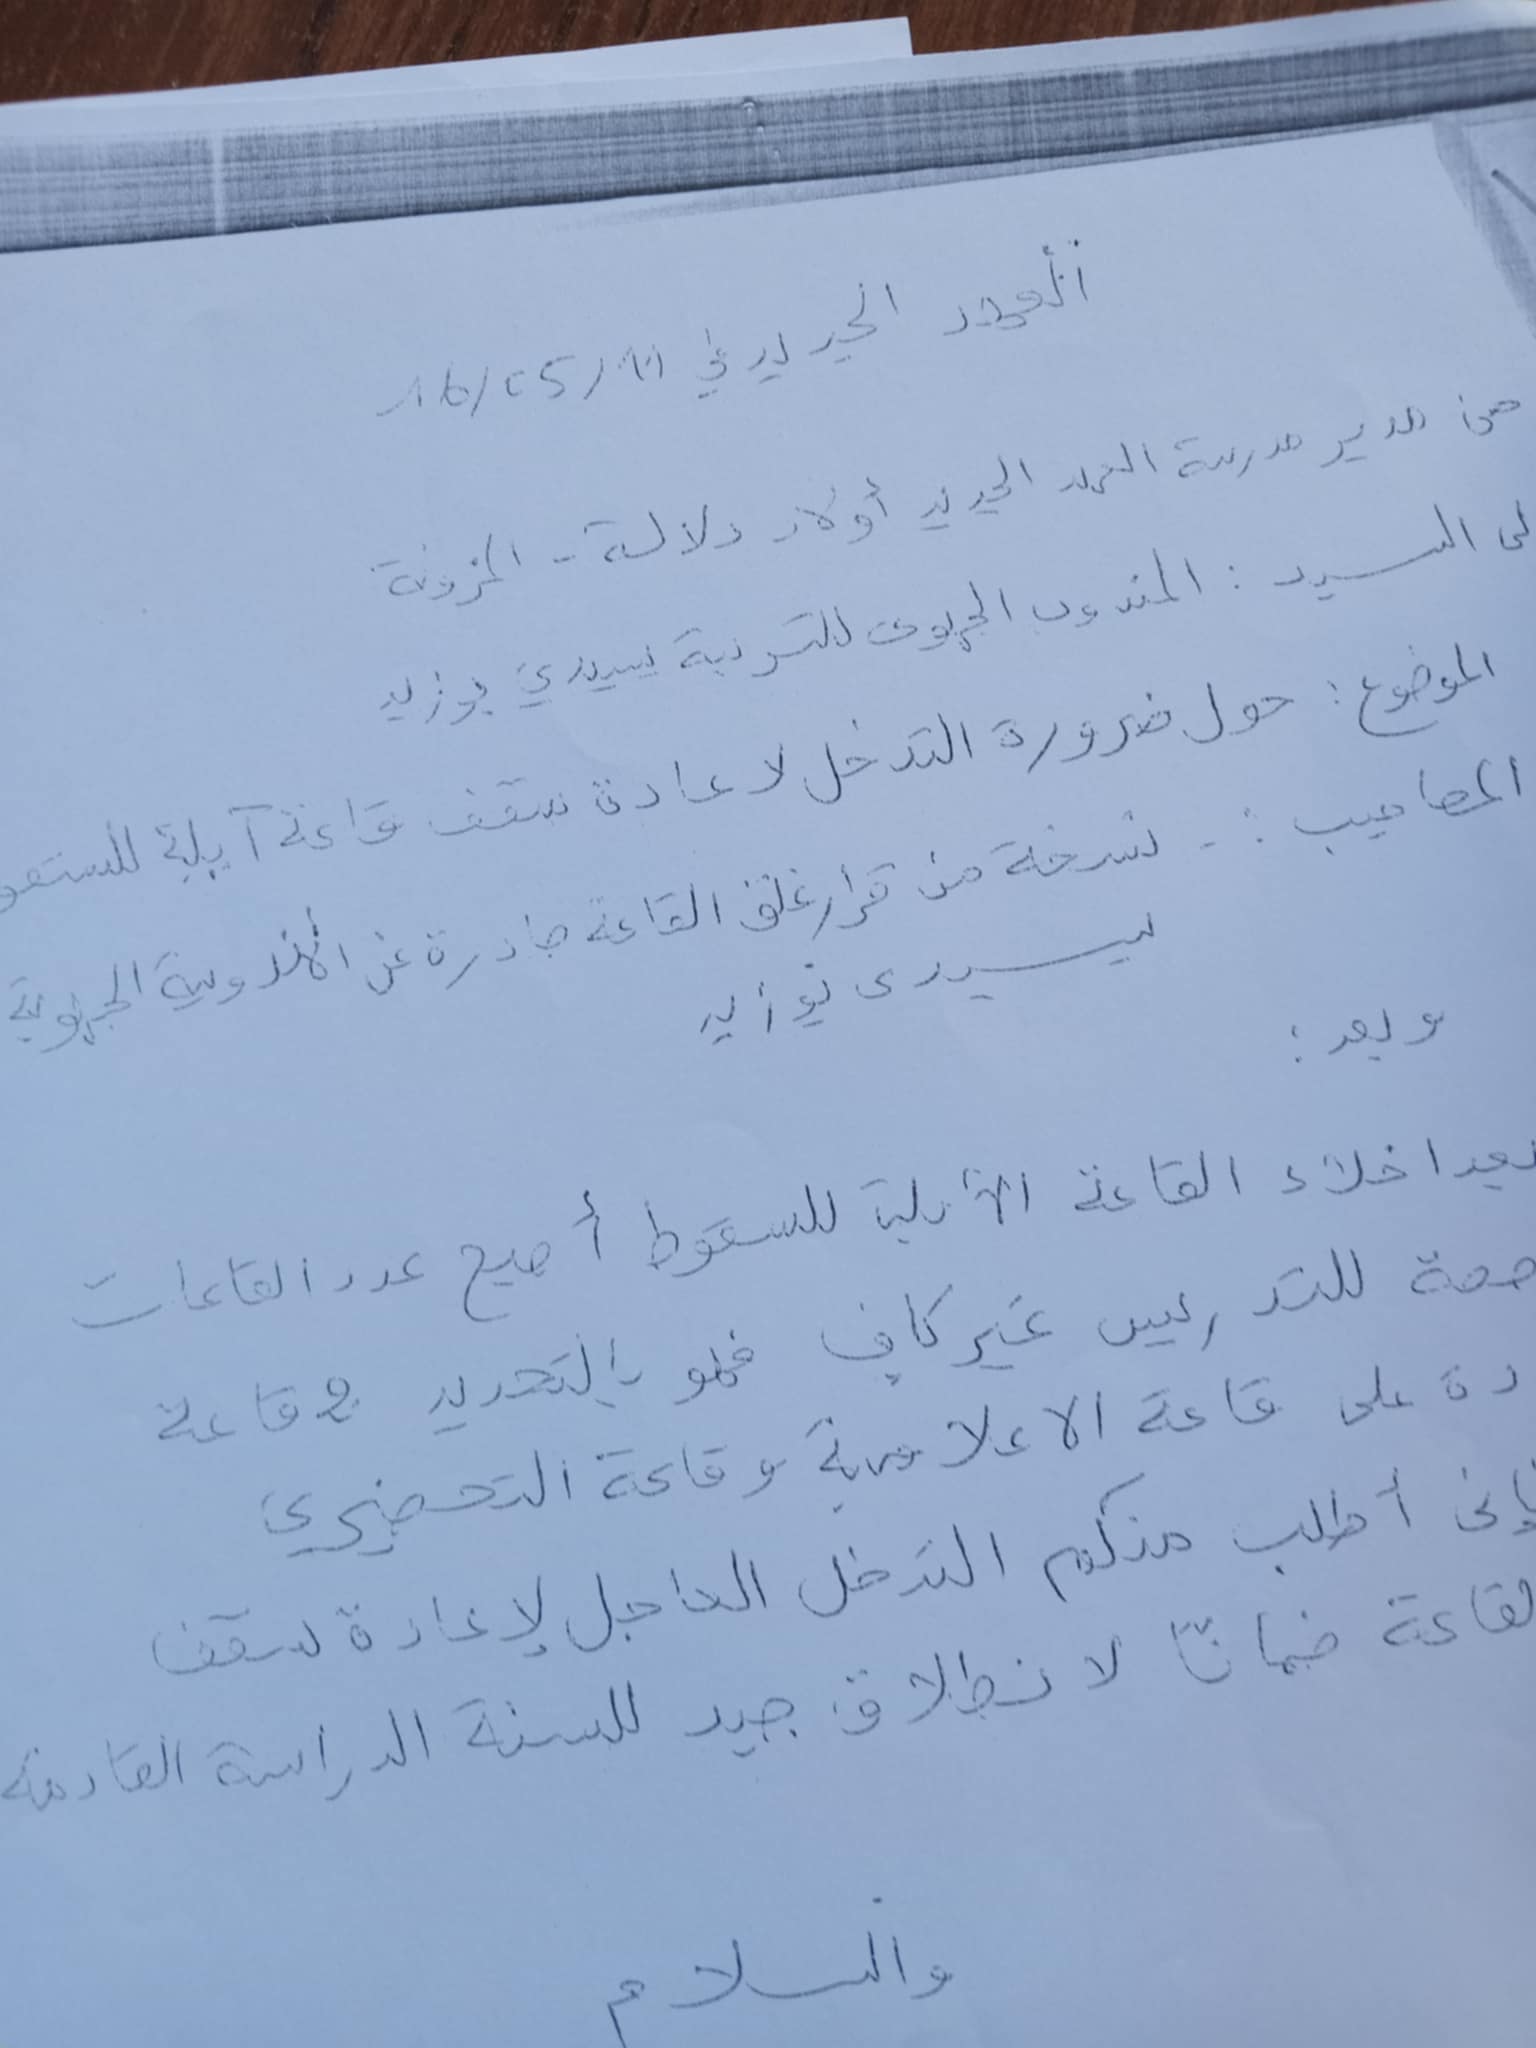 العهد الجديد في
من مدير مدرسة العهد الجديد أولاد دلالة - المزونة
السيد : المندوب الجهوي للتربية بسيدي بوزيد
الموضوع : حول ضرورة التدخل لاعادة سقف قاعة آيلة
المصاحيب : - نسخة من قرار غلق القاعة صادرة عن المندوبية الجهوية
بسيدي بوزيد
وبعد :
اخلاء القاعة الآيلة للسقوط أصبح عدد القاعات
للتدريس غير كاف فهو بالتحديد قاعة
على قاعة الاعلامية وقاعة التحضيري
أطلب منكم التدخل العاجل لإعادة سقف
ضمانًا لانطلاق جيد للسنة الدراسية القادمة
والسلام